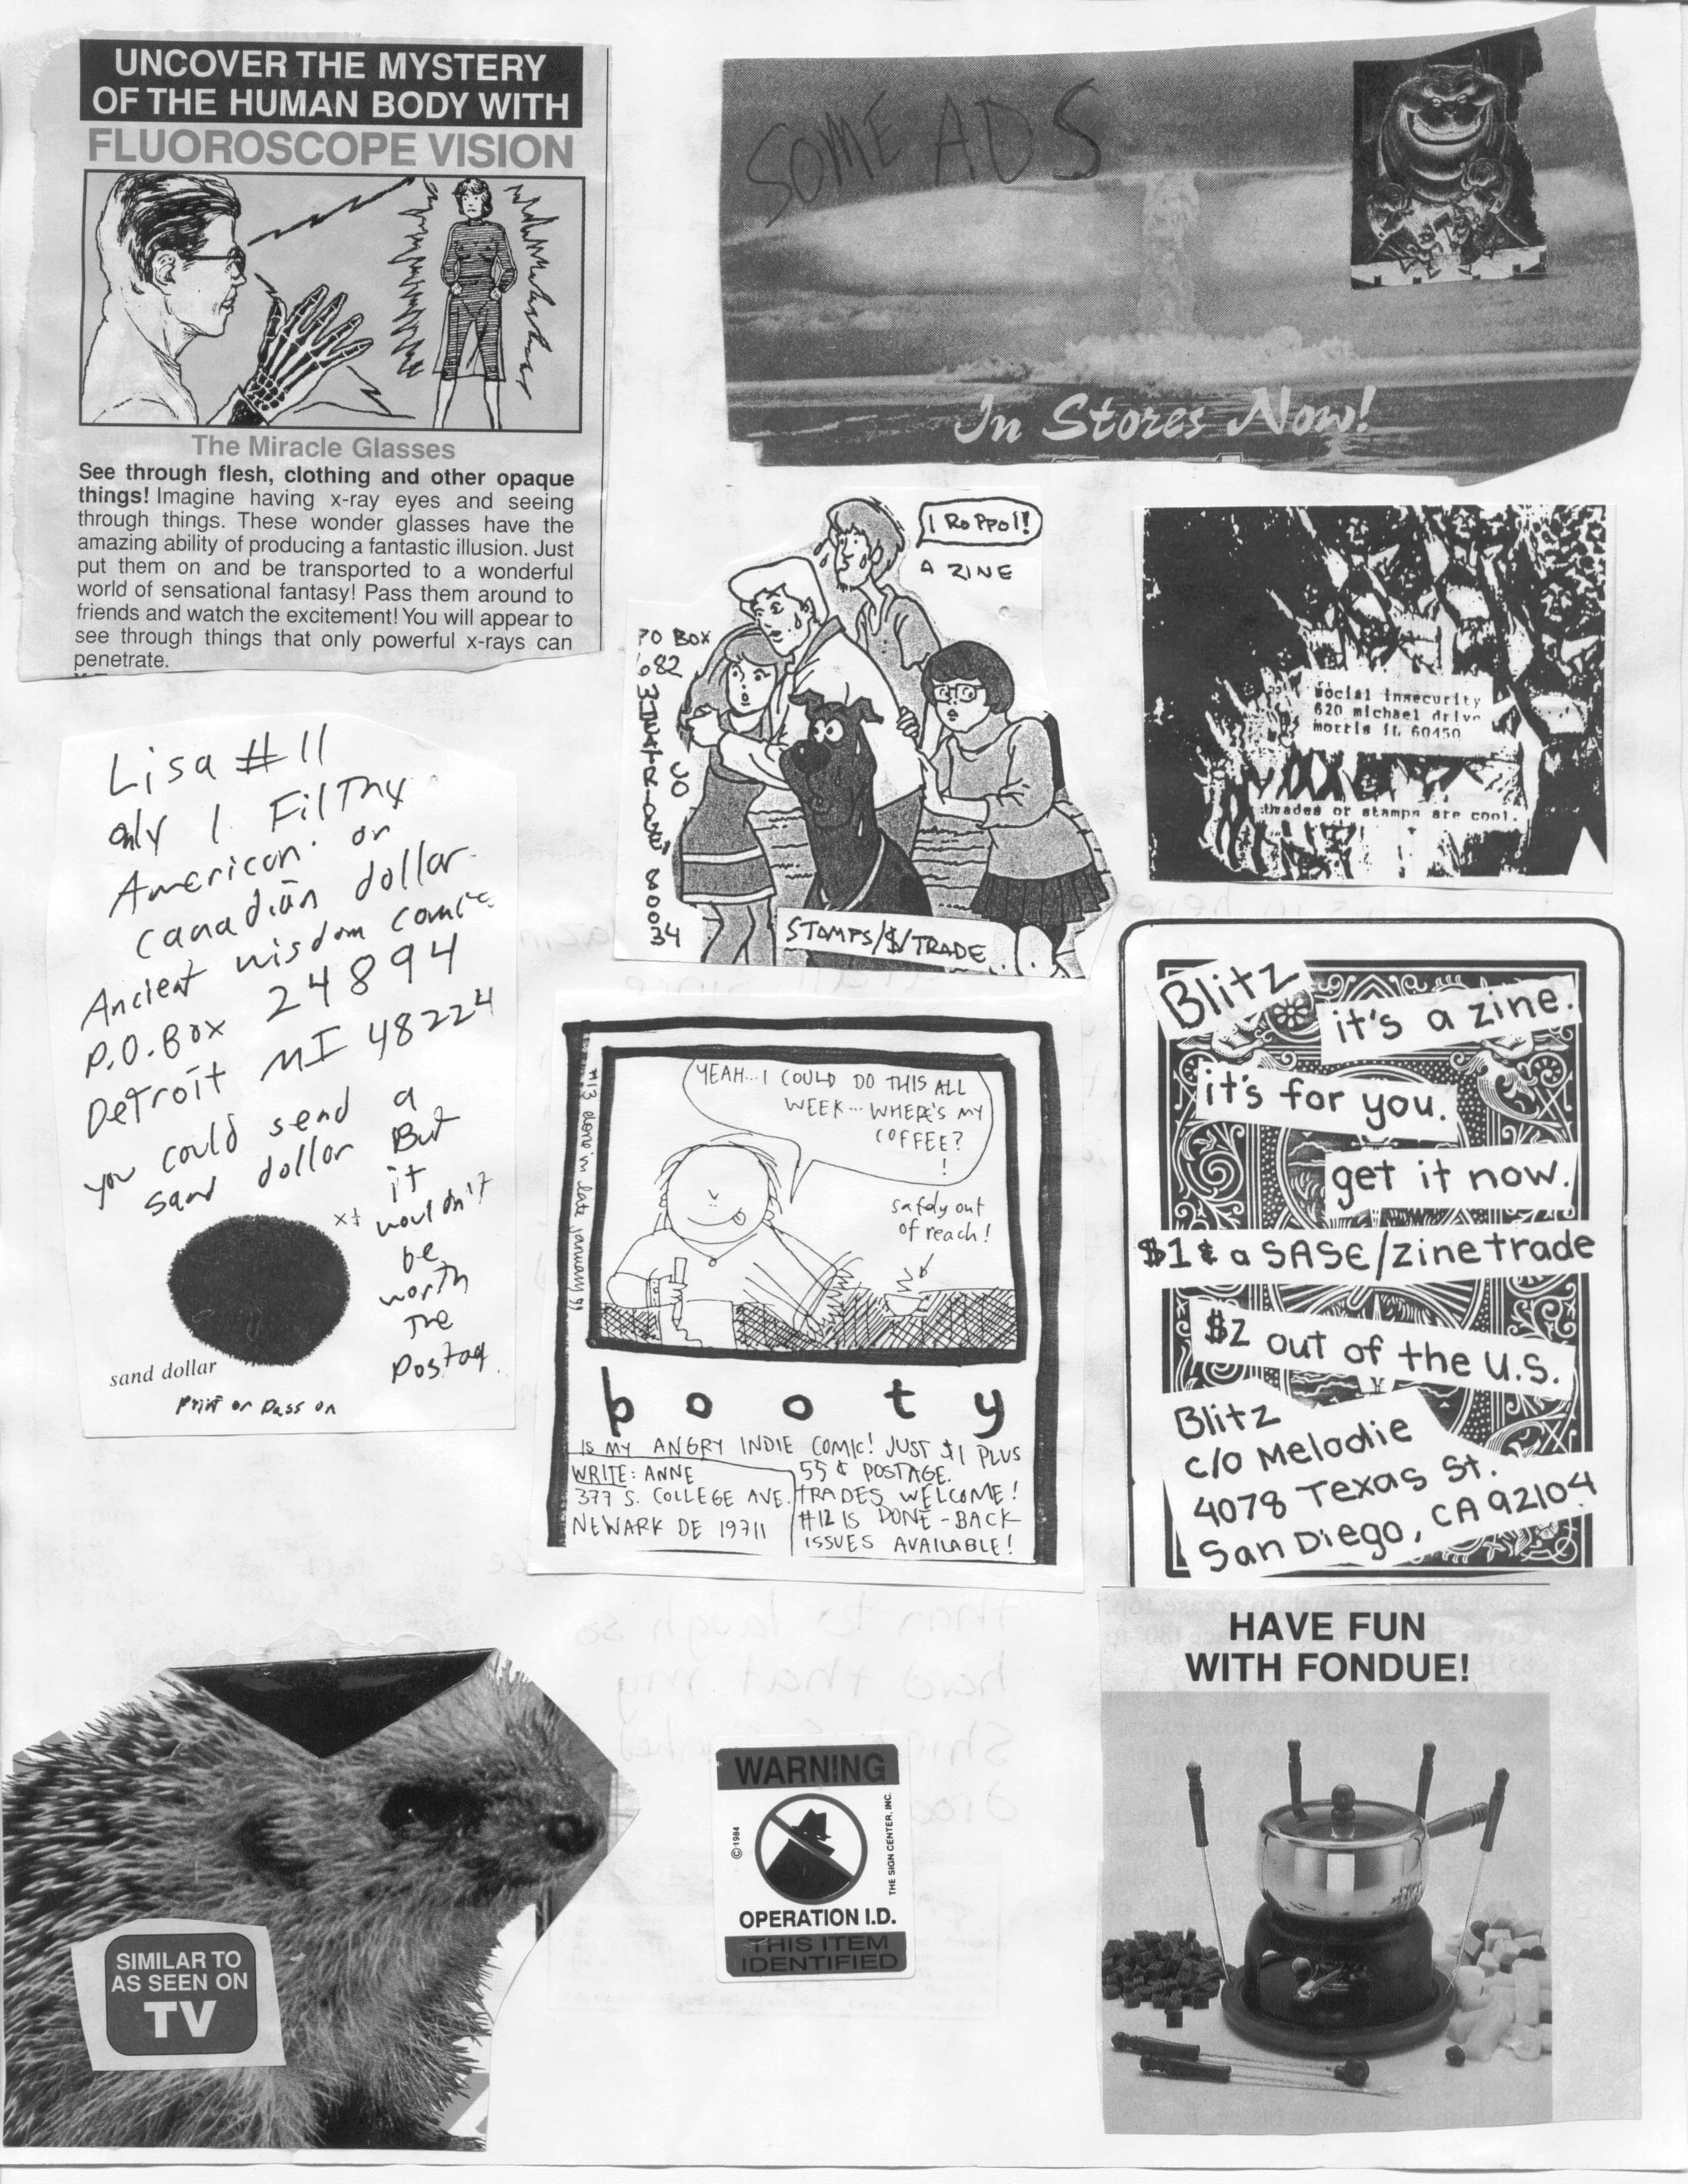 UNCOVER THE MYSTERY
OF THE HUMAN BODY WITH
FLUOROSCOPE VISION
The Miracle Glasses
See through flesh, clothing and other opaque
things! Imagine having x-ray eyes and seeing
through things. These wonder glasses have the
amazing ability of producing a fantastic illusion. Just
put them on and be transported to a wonderful
world of sensational fantasy! Pass them around to
friends and watch the excitement! You will appear to
see through things that only powerful x-rays can
penetrate.
SOME ADS
In Stores Now!
I Ro PPol!
A ZINE
PO BOX
682
CO
80034
STAMPS/$/TRADE
social insecurity
620 michael drive
morris il 60450
trades or stamps are cool.
Lisa #11
only 1 Filthy
American or
Canadian dollar
Ancient wisdom comics
P.O. Box 24894
Detroit MI 48224
you could send a
sand dollar But
it
wouldn't
be
worth
The
Postag
sand dollar
Print or Pass on
#13 done in late january 99
YEAH...I COULD DO THIS ALL
WEEK...WHERE'S MY
COFFEE?
!
safely out
of reach!
booty
IS MY ANGRY INDIE COMIC! JUST $1 PLUS
55¢ POSTAGE.
TRADES WELCOME!
#12 IS DONE - BACK
ISSUES AVAILABLE!
WRITE: ANNE
377 S. COLLEGE AVE.
NEWARK DE 19711
Blitz
it's a zine.
it's for you.
get it now.
$1 & a SASE/zine trade
$2 out of the U.S.
Blitz
c/o Melodie
4078 Texas St.
San Diego, CA 92104
SIMILAR TO
AS SEEN ON
TV
WARNING
©1984
THE SIGN CENTER, INC.
OPERATION I.D.
THIS ITEM
IDENTIFIED
HAVE FUN
WITH FONDUE!